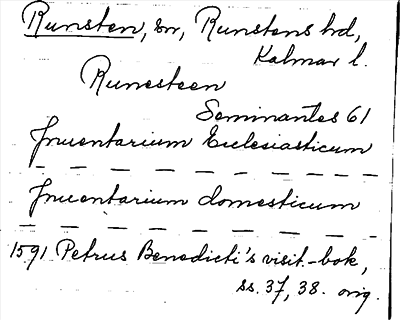 Runsten, sn, Runstens hd,
Kalmar l.
Runesteen
Seminantes 61
Inuentarium Ecclesiasticum
Inuentarium domesticum
1591 Petrus Benedicti's visit.-bok,
ss. 37, 38. orig.